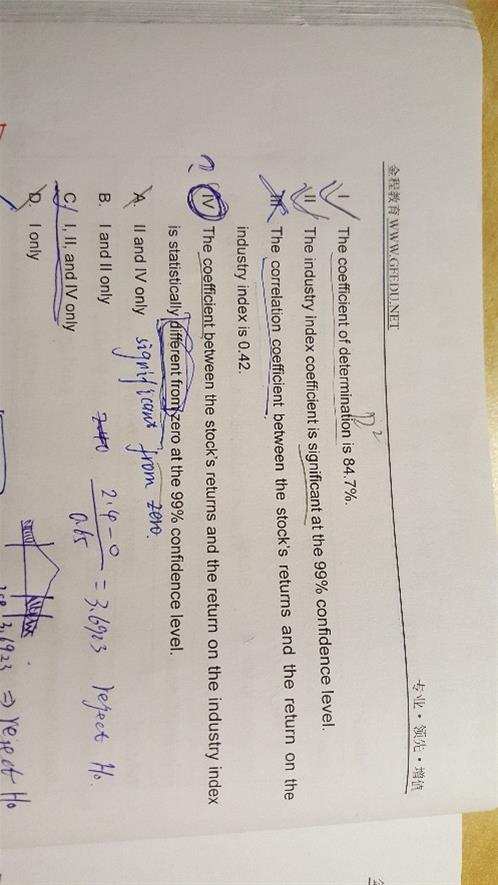 金程教育 WWW.GFEDU.NET
专业·领先·增值
I The coefficient of determination is 84.7%.
R²
II The industry Index coefficient is significant at the 99% confidence level.
III The correlation coefficient between the stock's returns and the return on the
industry index is 0.42.
IV The coefficient between the stock's returns and the return on the industry index
is statistically different from zero at the 99% confidence level.
significant from zero.
A. II and IV only
B. I and II only
2.4-0
0.65
= 3.6923 reject H₀.
C. I, II, and IV only
D. I only
3.6923 ⇒ reject H₀